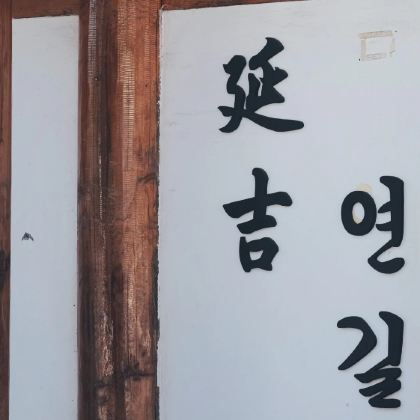 延吉
연길